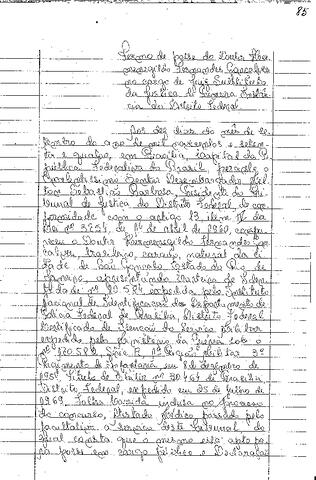 85
Termo de posse do Doutor Her
menegildo Fernandes Gonçalves
no cargo de Juiz Substituto
da Justiça de Primeira Instân
cia do Distrito Federal.
Aos dez dias do mês de se
tembro do ano de mil novecentos e seten
ta e quatro, em Brasília, capital da Re
pública Federativa do Brasil, perante o
Excelentíssimo Senhor Desembargador Mil
ton Sebastião Barbosa, Presidente do Tri
bunal de Justiça do Distrito Federal, de con
formidade com o artigo 13, item IV da
Lei nº 3754, de 14 de abril de 1960, compa
receu o Doutor Hermenegildo Fernandes Gon
çalves, brasileiro, casado, natural da ci
dade de São Gonçalo, Estado do Rio de
Janeiro, apresentando Carteira de Iden
tidade nº expedida pelo Instituto
Nacional de Identificação do Departamento de
Polícia Federal de Brasília, Distrito Federal,
Certificado de Isenção do Serviço Militar
expedido pelo Ministério da Guerra sob o
nº 320.582, Série B, 1ª Região Militar 3º
Regimento de Infantaria em 8 de dezembro de
Título de Eleitor nº de Brasília
Distrito Federal, expedido em 25 de julho de
1969, Folha Corrida, inclusa no processo
de concurso, Atestado médico, passado pelo
facultativo a serviço deste Tribunal, do
qual consta que o mesmo está apto pa
ra posse em cargo público e Declaração